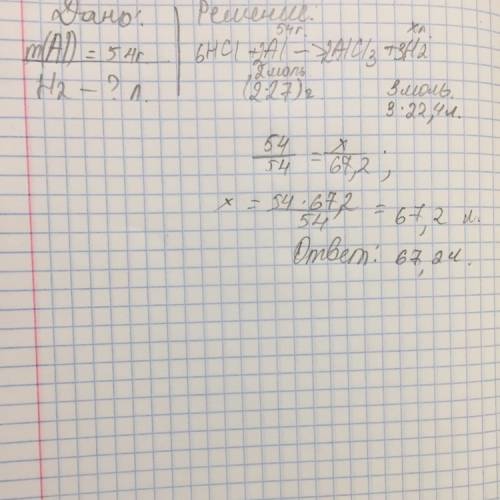 Дано:
m(Al) = 54г.
H2 - ? л.
Решение:
54г. xл.
6HCl + 2Al -> 2AlCl3 + 3H2
2моль 3моль.
(2·27)г 3·22,4л.
54/54 = x/67,2;
x = 54·67,2/54 = 67,2 л.
Ответ: 67,2л.